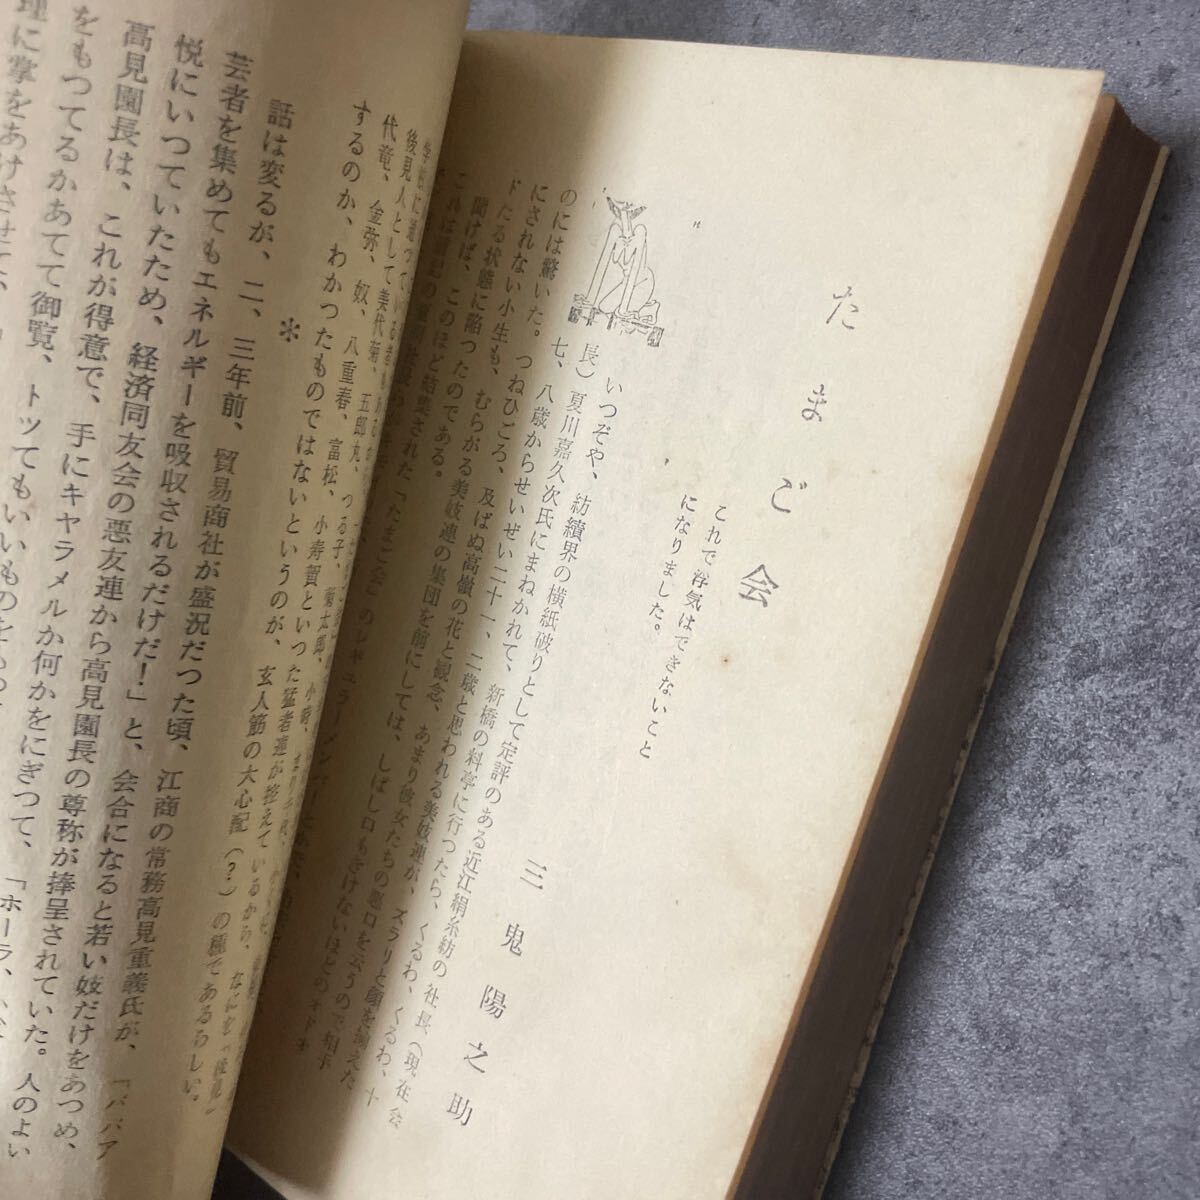 たまご会
三鬼陽之助
これで浮気はできないこと
になりました。
いつぞや、紡績界の横紙破りとして定評のある近江絹糸紡の社長、(現在会
長)夏川嘉久次氏にまねかれて、新橋の料亭に行つたら、くるわ、くるわ、十
七、八歳からせいぜい二十一、二歳と思われる美妓連が、ズラリと顔を揃えた
のには驚いた。つねひごろ、及ばぬ高嶺の花と観念、あまり彼女たちの悪口を云うので相手
にされない小生も、むらがる美妓連の集団を前にしては、しばし口もきけないほどのオドオ
ドたる状態に陥つたのである。
聞けば、このほど結集された「たまご会」のレギュラー
後見人として美代菊、五郎丸、つる子、菊太郎、小時、
代竜、金弥、奴、八重春、富松、小寿賀といつた猛者連が控えているから、なにせ
するのか、わかつたものではないというのが、玄人筋の大心配(?)の種であるらしい。
*
話は変るが、二、三年前、貿易商社が盛況だつた頃、江商の常務高見重義氏が、「ババア
芸者を集めてもエネルギーを吸収されるだけだ!」と、会合になると若い妓だけをあつめ、
悦にいつていたため、経済同友会の悪友連から高見園長の尊称が捧呈されていた。人のよい
高見園長は、これが得意で、手にキャラメルか何かをにぎつて、「ホーラ、
をもつてるかあてて御覧、トツてもいいものを
理に掌をあけさせて、